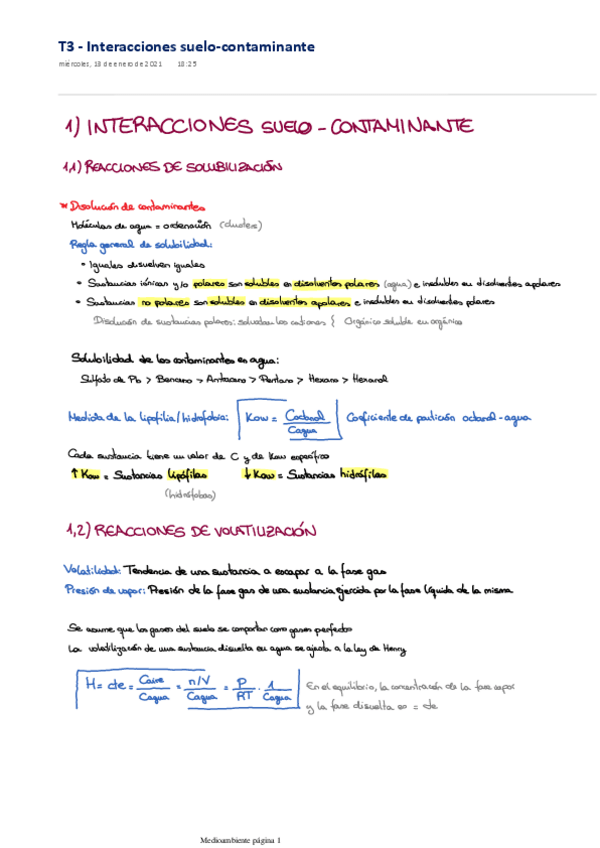 T3 - Interacciones suelo-contaminante
miércoles, 13 de enero de 2021 18:25
1) INTERACCIONES SUELO - CONTAMINANTE
1,1) REACCIONES DE SOLUBILIZACIÓN
* Disolución de contaminantes
Moléculas de agua = ordenación (clusters)
Regla general de solubilidad:
• Iguales disuelven iguales
• Sustancias iónicas y/o polares son solubles en disolventes polares (agua) e insolubles en disolventes apolares
• Sustancias no polares son solubles en disolventes apolares e insolubles en disolventes polares
Disolución de sustancias polares: solvatan los cationes { Orgánico soluble en orgánico
Solubilidad de los contaminantes en agua:
Sulfato de Pb > Benceno > Antraceno > Pentano > Hexano > Hexanol
Medida de la lipofilia/hidrofobia: Kow = Coctanol / Cagua Coeficiente de partición octanol-agua
Cada sustancia tiene un valor de C y de Kow específico
↑ Kow = Sustancias lipófilas ↓ Kow = Sustancias hidrófilas
(hidrófobas)
1,2) REACCIONES DE VOLATILIZACIÓN
Volatilidad: Tendencia de una sustancia a escapar a la fase gas
Presión de vapor: Presión de la fase gas de una sustancia ejercida por la fase líquida de la misma
Se asume que los gases del suelo se comportan como gases perfectos
La volatilización de una sustancia disuelta en agua se ajusta a la ley de Henry
H = cte = Caire / Cagua = n/V / Cagua = P / RT · 1 / Cagua En el equilibrio, la concentración de la fase vapor
y la fase disuelta es = cte
Medioambiente página 1